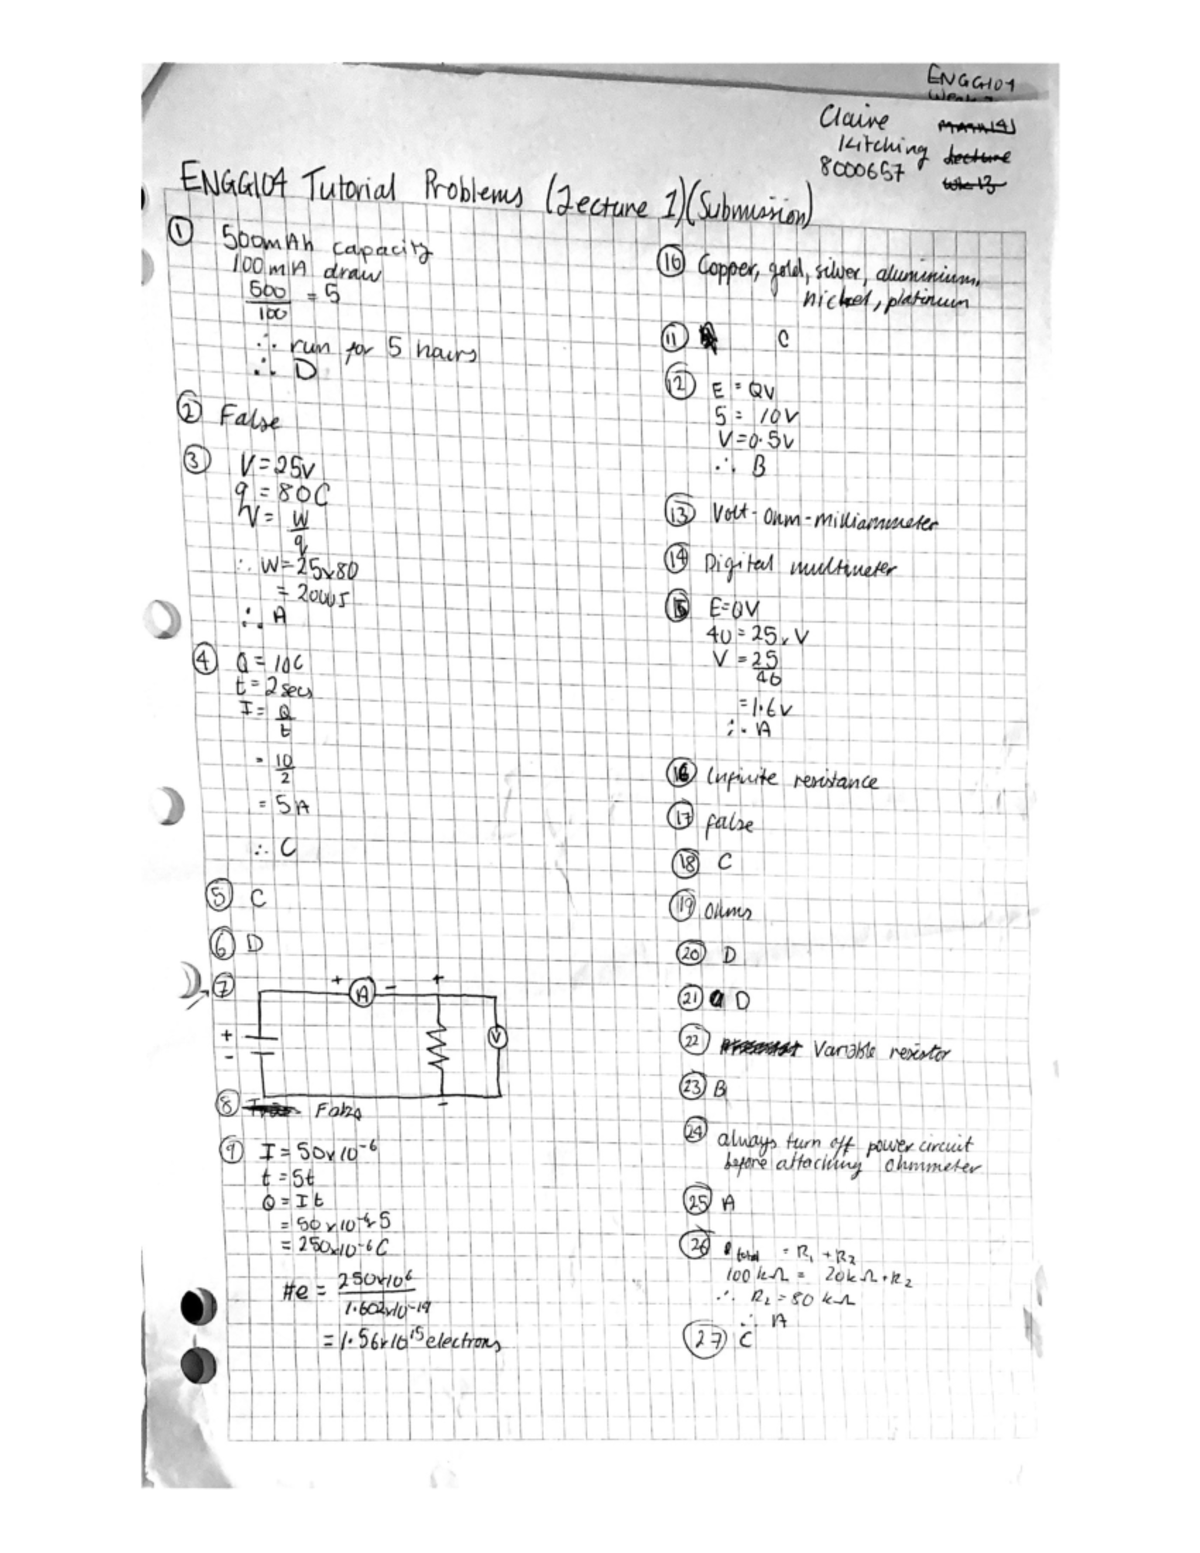 ENGG104
Claire
Kitching
8000657
Lecture
wk 13
ENGG104 Tutorial Problems (Lecture 1)(Submission)
① 500mAh capacity
100mA draw
500/100 = 5
∴ run for 5 hours
∴ D
② False
③ V=25V
q=80C
V=W/q
∴ W=25x80
= 2000J
∴ A
④ Q=10C
t=2secs
I=Q/t
=10/2
=5A
∴ C
⑤ C
⑥ D
⑦
+ A - +
V
+
-
-
⑧ False
⑨ I=50x10^-6
t=5t
Q=It
=50x10^-6x5
=250x10^-6C
#e = 250x10^6/1.602x10^-19
=1.56x10^15 electrons
⑩ Copper, gold, silver, aluminium,
nickel, platinum
⑪ C
⑫ E=QV
5=10V
V=0.5V
∴ B
⑬ Volt-ohm-milliammeter
⑭ Digital multimeter
⑮ E=QV
40=25xV
V=25/40
=1.6V
∴ A
⑯ Infinite resistance
⑰ false
⑱ C
⑲ Ohms
⑳ D
㉑ D
㉒ Variable resistor
㉓ B
㉔ always turn off power circuit
before attaching ohmmeter
㉕ A
㉖ R total = R1 + R2
100kΩ = 20kΩ + R2
∴ R2 = 80kΩ
∴ A
㉗ C